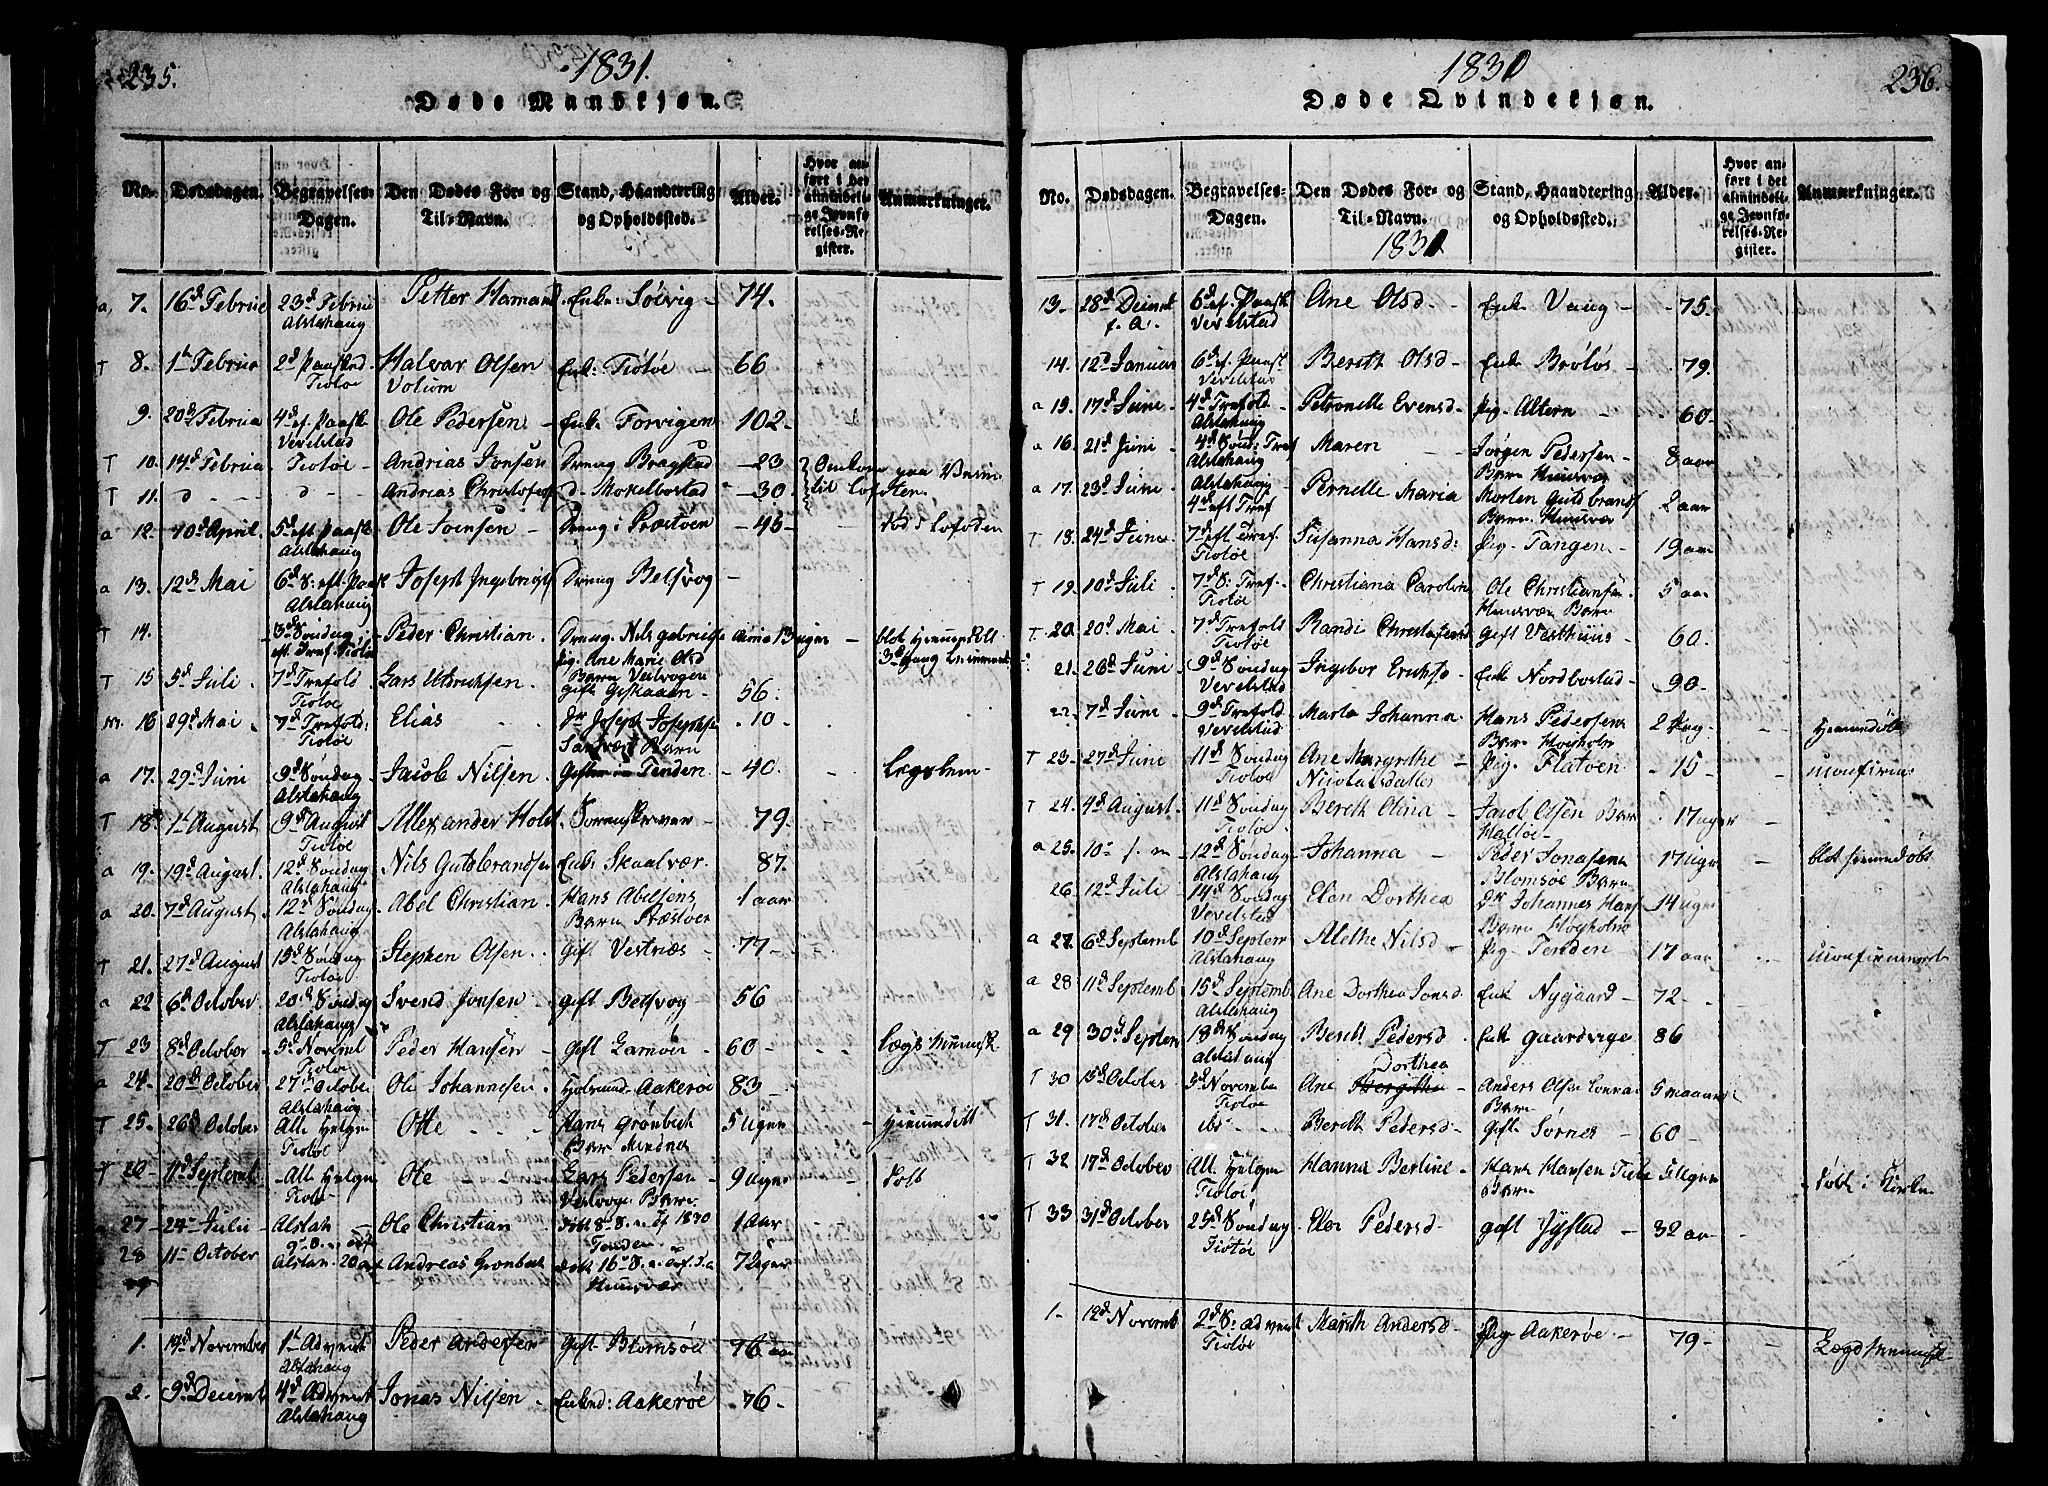 235.
1831.
Døde Mandkjøn.
No.
Dødsdagen.
Begravelses-Dagen.
Den Dødes For- og Til-Navn.
Stand, Haandtering og Opholdssted.
Alder.
Hvor anført i det almindelige Jevnførelses-Register.
Anmærkninger.
a, 7. 16d Februe 23d Februe Alstahaug Petter Hamand. Enk: Søivig 74.
T 8. 1st Februe 2d Paaskd Tiotøe Halvar Olsen Volum Enk: Tiotøe 66
9. 20d Februa 4d ef. Paask Vevelstad Ole Pedersen Enk. Forvigen 102
T 10. 14d Februa Tiotøe Andrias Jonsen Dreng Bragstad 23 Omkom paa Veien til Lofoten
T 11. d d Andrias Christofers d Mokelbostad 30
a 12. 10d April 5d eft Paask Alstahaug Ole Joensen Dreng i Præstøen 46 død i Lofoden
a 13. 12d Mai 6d S: eft. Paask Alstahaug Joseph Ingebrigts Dreng Belsvog
T 14. 3d Søndag eft. Tref. Tiotøe Peder Christian Dreng Nils Gabriels Pig. Ane Marie Olsd Barn Veilvogen 13 uger blot hiemmedøbt
T 15 5d Juli 7d Trefold Tiotøe Lars Ulrichsen gift Giskaaen 56.
16 29d Mai 7d Trefold: Tiotøe Elias Joseph Josephs Sandvær Barn 10
a 17. 29d Juni 9d Søndag Alstahaug Jacob Nilsen Gift Tenden 40. Legslem
T 18 1st August 9d August Tiotøe Allexander Holst Sorenskriver 79.
a 19. 19d August 12d Søndag Alstahaug Nils Gutsbrandsen Enk. Skaalvær. 87.
a 20. 7d August 12d Søndag Alstahaug Abel Christian Hans Abelsens Barn Præstøen 1 aar
T 21. 27d August 15d Søndag Tiotøe Stephen Olsen gift Vestnæs 77
a 22 6d October 20d Søndag Alstahaug Svend Jonsen gift Belsvog 56
T 23 8d October 5d Novemb Tiotøe Peder Hansen gift Lamøen 60 Lægs Mennsk
a 24. 20d October 27d October Alstahaug Ole Johannesen Aakerøe 83
T 25. 26d October All: Helgen Tiotøe Otte Hans Grønbech Barn Mindnæs 5 Uger Hiemmedøbt
T 26 11d Septemb All Helgen Tiotøe Ole Lars Pedersen Veilvogn Barn 9 Uger Døbt
a 27 24 Juli Alstah Ole Christian Døbt 8d S. 1830 Tenden 1 Aar
28 11 October Alstah. 20 Andreas Grønbech døbt 16d S. Huusvær 7 Uger
1. 19d November 1st Advent Alstahaug Peder Andersen Gift Blomsøe 76 aar
2. 9d Decemb 4d Advent Alstahaug Jonas Nilsen Enkd: Aakerøe 76
1830
236.
Døde Qvindekjøn.
No.
Dødsdagen.
Begravelses-Dagen.
Den Dødes For- og Til-Navn.
Stand, Haandtering og Opholdssted.
Alder.
Hvor anført i det almindelige Jevnførelses-Register.
Anmærkninger.
1831
13. 28d Decemb f. A. 6d ef. Paask Vevelstad Ane Olsd Enk Vaag 75.
14. 12d Januar 6d ef. Paask Vevelstad Bereth Olsd Enk Brøløs 79.
a 15. 17d Juni 4d Trefold Alstahaug Petronelle Evensd Pig. Altern 60
a 16. 21d Juni 4d Sønd: Tref Alstahaug Maren Jørgen Pedersen Barn Huusvær 8 aar
a 17. 23d Juni Alstahaug 4d eft Tref Pernelle Maria Morten Gutsbrands Barn. Huusvær 2 aar
T 18. 24d Juni 7d eft Tref. Tiotøe Susanna Hansd: Pig. Tangen 19 aar
T 19. 10d Juli 7d S: Tref. Tiotøe Christiana Carolin Ole Christiansen Huusvær Barn 5 aar
T 20. 20d Mai 7d Trefold Tiotøe Randi Christofersd Gift Vesthuus 60.
21. 26d Juni 9d Søndag Vevelstad Ingebor Ericksd Enk Nordbostad 90
22 7d Juni 9d Trefold Vevelstad Marta Johanna Hans Pedersens Barn Høiholm 2 Dag Hiemmedøbt
T 23. 27d Juni 11d Søndag Tiotøe Ane Margrethe Nicolaisdatter Pig. Flatøen 15 uconfirm
T 24. 4d August 11d Søndag Tiotøe Bereth Elina Jacob Olsen Barn Haltøe 17 uger
a 25. 10 f. m 12d Søndag Alstahaug Johanna Peder Jonasens Blomsøe Barn 17 Uger blot hiemmedøbt
26. 12d Juli 14d Søndag Vevelstad Elen Dorthea Johannes Hans Barn Høyholm 14 uger
a 27. 6d Septemb 10d Septem Alstahaug Alethe Nilsd Pig. Tenden 17 aar uconfirmeret
a 28 11d Septemb 15d Septemb Alstahaug Ane Dorthea Jonsd. Enk Nygaard 72
a 29 30d Septem 18d Søndag Alstahaug Bereth Pedersd Enk Gaardvige 86
T 30 15d October 5d Novembr Tiotøe Ane Bergithe Dorthea Anders Olsen Barn 5 maaned
T 31. 17d October ibd Bereth Pedersd gift Sørnes 60
T 32 17d October All. Helgen Tiotøe Hanna Bertine Hans Hansen Barn 5 Uger døbt i Kirken
T 33 31d October 25d Søndag Tiotøe Elen Pedersd gift Jystad 32 aar
1 12d Novemb 2d S. Advent Tiotøe Marith Andersd Pig. Aakerøe 79 Lægdsmennisk